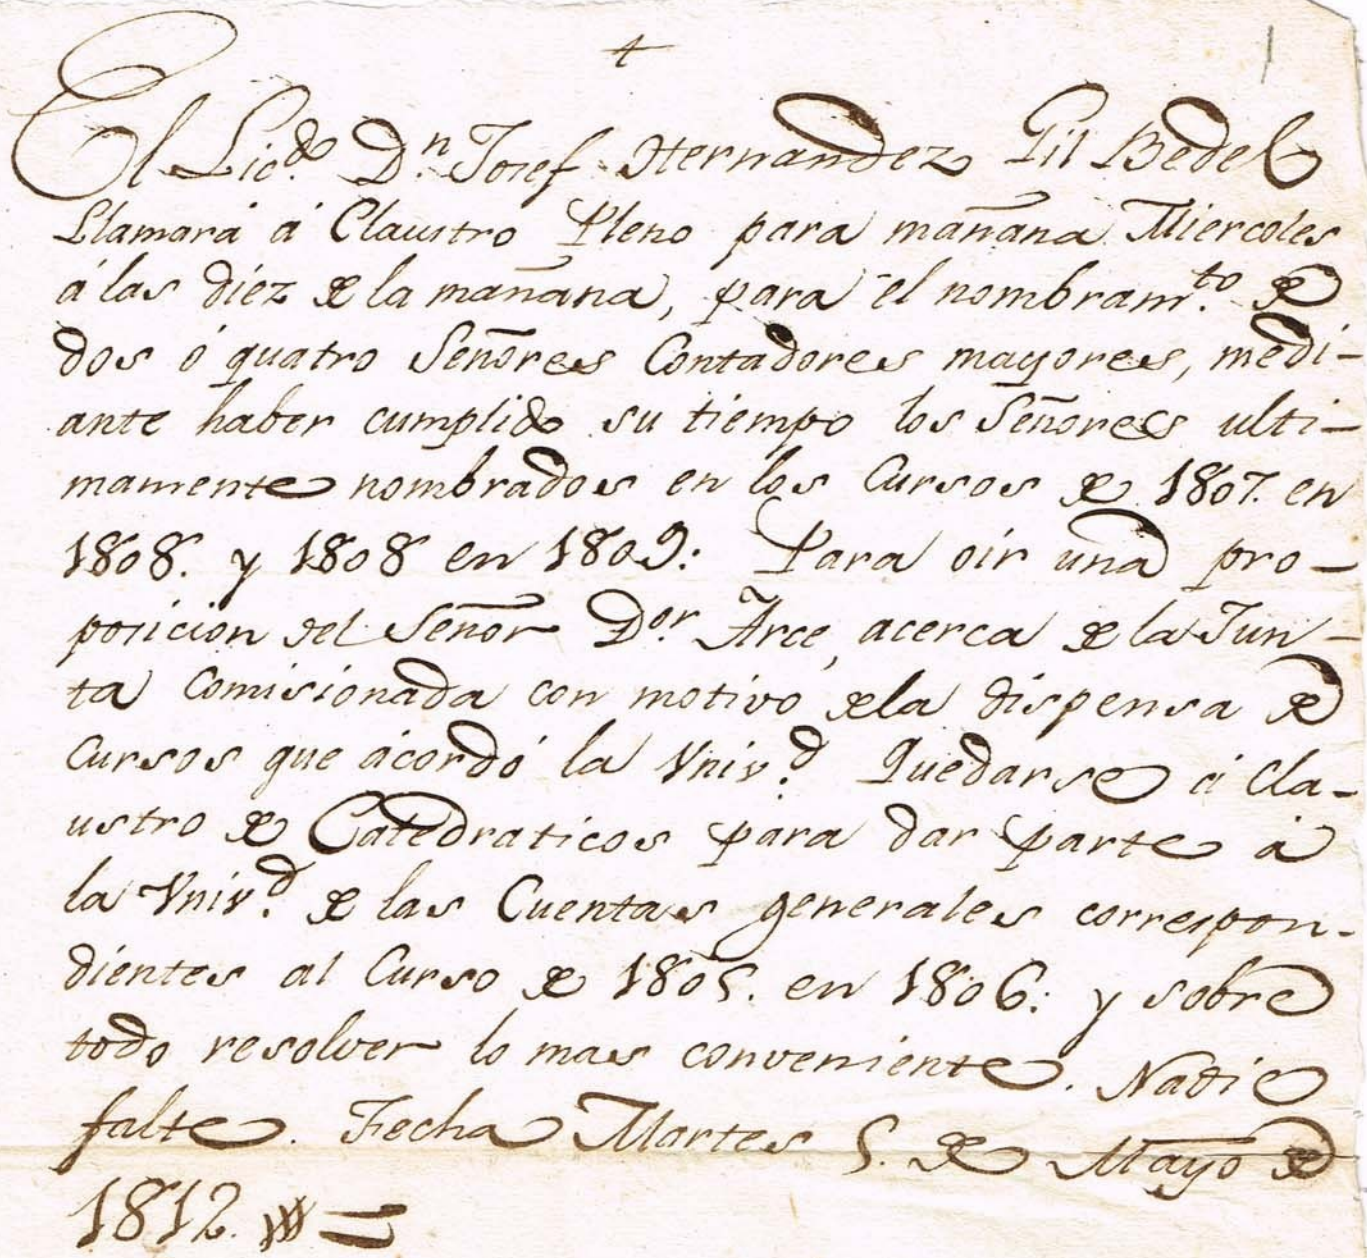 +
El Lic.do D.n Josef Hernandez Gil Bedel
Llamará á Claustro Pleno para mañana Miercoles
á las diez de la mañana, para el nombram.to de
dos ó quatro Señores Contadores mayores, medi-
ante haber cumplido su tiempo los Señores ulti-
mamente nombrados en los Cursos de 1807. en
1808. y 1808 en 1809: Para oir una pro-
posicion del Señor D.or Arce, acerca de la Jun-
ta Comisionada con motivo de la dispensa de
Cursos que ácordó la Vniv.d Quedarse á Cla-
ustro de Catedraticos para dar parte á
la Vniv.d de las Cuentas generales correspon-
dientes al Curso de 1805. en 1806: y sobre
todo resolver lo mas conveniente. Nadie
falte. Fecha Martes 5. de Mayo de
1812.